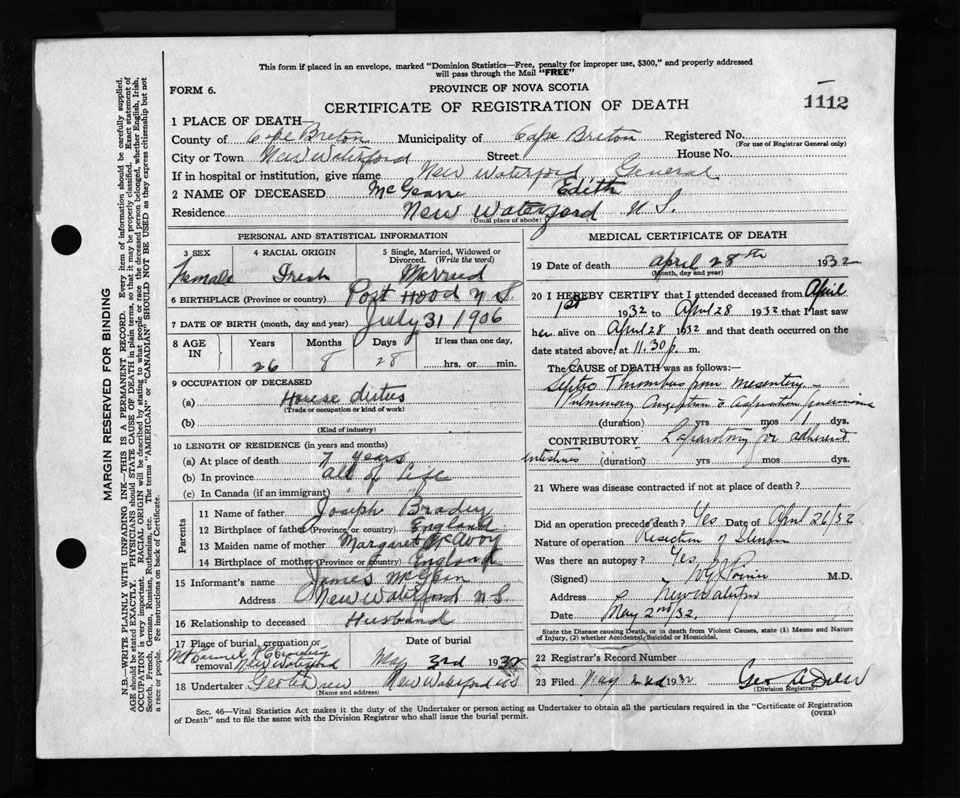 This form if placed in an envelope, marked "Dominion Statistics—Free, penalty for improper use, $300," and properly addressed
will pass through the Mail "FREE"
FORM 6.
PROVINCE OF NOVA SCOTIA
CERTIFICATE OF REGISTRATION OF DEATH
1112
1 PLACE OF DEATH—
County of Cape Breton Municipality of Cape Breton Registered No.
(For use of Registrar General only)
City or Town New Waterford Street House No.
If in hospital or institution, give name New Waterford General
2 NAME OF DECEASED McGeann Edith
Residence New Waterford N.S.
(Usual place of abode)
PERSONAL AND STATISTICAL INFORMATION
3 SEX
Female
4 RACIAL ORIGIN
Irish
5 Single, Married, Widowed or
Divorced. (Write the word)
Married
6 BIRTHPLACE (Province or country) Port Hood N S.
7 DATE OF BIRTH (month, day and year) July 31 1906
8 AGE
IN
Years Months Days If less than one day,
26 8 28 hrs. or min.
9 OCCUPATION OF DECEASED
(a) House duties
(Trade or occupation or kind of work)
(b)
(Kind of industry)
10 LENGTH OF RESIDENCE (in years and months)
(a) At place of death 7 years
(b) In province all of Life
(c) In Canada (if an immigrant)
Parents
11 Name of father Joseph Brady
12 Birthplace of father (Province or country) England
13 Maiden name of mother Margaret McAvoy
14 Birthplace of mother (Province or country) England
15 Informant's name James McGean
Address New Waterford N S
16 Relationship to deceased Husband
17 Place of burial, cremation or
removal Mt Carmel New Waterford
Date of burial
May 3rd 1932
18 Undertaker Geo A Drew New Waterford N S
(Name and address)
MEDICAL CERTIFICATE OF DEATH
19 Date of death April 28th 1932
(Month, day and year)
20 I HEREBY CERTIFY that I attended deceased from April
1st 1932 to April 28 1932 that I last saw
her alive on April 28 1932 and that death occurred on
date stated above, at 11.30 p. m.
The CAUSE of DEATH was as follows:
Septic Thrombus from mesentery
Pulmonary aspiration pneumonia
(duration) yrs mos dys.
CONTRIBUTORY Laparotomy for adherent
intestines (duration) yrs mos dys.
21 Where was disease contracted if not at place of death?
Did an operation precede death? Yes Date of April 26/32
Nature of operation Resection of Ileum
Was there an autopsy? Yes
(Signed) M.D.
Address New Waterford
Date May 2nd/32.
State the Disease causing Death, or in death from Violent Causes, state (1) Means and Nature
of Injury, (2) whether Accidental, Suicidal or Homicidal.
22 Registrar's Record Number
23 Filed May 2nd 1932 Geo A Drew
(Division Registrar)
Sec. 46—Vital Statistics Act makes it the duty of the Undertaker or person acting as Undertaker to obtain all the particulars required in the "Certificate of Registration
of Death" and to file the same with the Division Registrar who shall issue the burial permit.
(OVER)
MARGIN RESERVED FOR BINDING
N.B.—WRITE PLAINLY WITH UNFADING INK—THIS IS A PERMANENT RECORD. Every item of information should be carefully supplied.
AGE should be stated EXACTLY. PHYSICIANS should STATE CAUSE OF DEATH in plain terms, so that it may be properly classified. Exact statement of
OCCUPATION is very important. RACIAL ORIGIN will be described by stating to what people or race the deceased person belonged, whether English, Irish,
Scotch, French, German, Russian, Ruthenian, etc. The terms "AMERICAN" or "CANADIAN" SHOULD NOT BE USED as they express citizenship but not
a race or people. See instructions on back of Certificate.